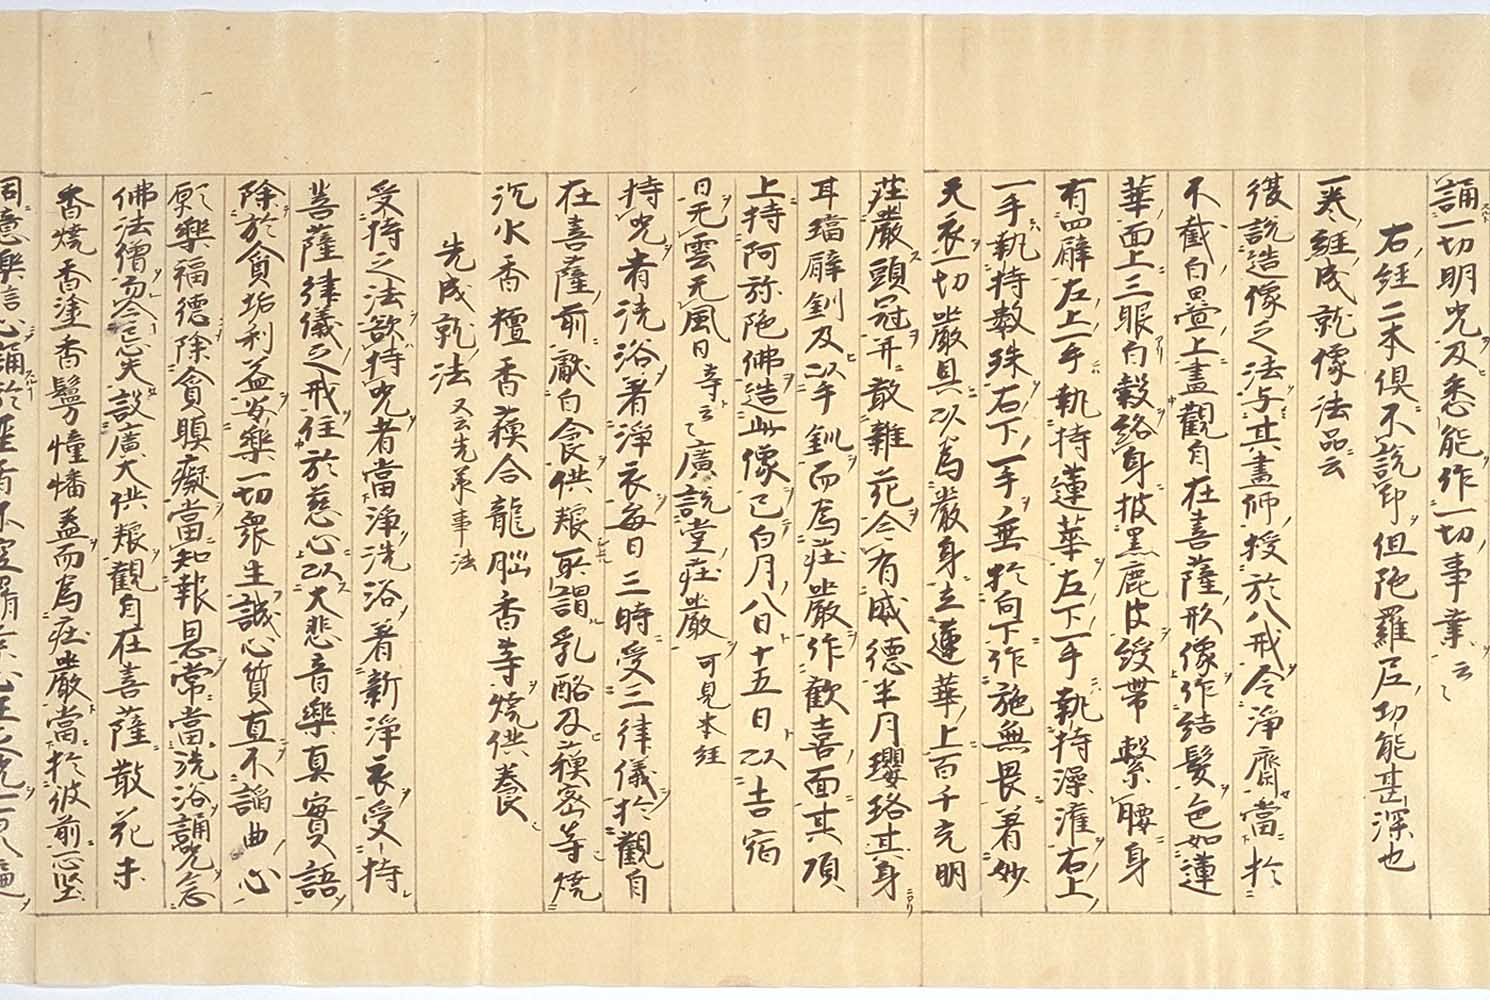 誦一切明咒及悉能作一切事業云〻
右經二本俱不説印但陁羅尼功能甚深也
一卷經成就像法品云
復説造像之法与其畫師授於八戒令淨齋當於
不截白㲲上畫觀自在菩薩形像作結髮色如蓮
華面上三眼白縠絡身披黒鹿皮綬帶繫腰身
有四臂左上一手執持蓮華左下一手執持澡灌右上
一手執持數珠右下一手垂於向下作施無畏著妙
天衣一切嚴具以為嚴身立蓮華上百千光明
莊嚴頭冠并散雜花令有威德半月瓔珞其身
耳璫臂釧及以手釧而為莊嚴作歡喜面其項
上持阿弥陁佛造此像已白月八日十五日以吉宿
日无雲无風日等云〻廣説堂莊嚴可見本經
持咒者洗浴著淨衣每日三時受三律儀於觀自
在菩薩前獻白食供養所謂乳酪及蘇蜜等燒
沉水香檀香蘓合龍腦香等燒供養
先成就法又云先承事法
受持之法欲持咒者當淨洗浴著新淨衣受持
菩薩律儀之戒住於慈心以大悲音樂真實語
除於貪垢利益安樂一切衆生誠心質直不諂曲心
願樂福德除貪瞋癡當知報恩常當洗浴誦咒念
佛法僧勿令忘失設廣大供養觀自在菩薩散花末
香燒香塗香鬘幢幡蓋而為莊嚴當於彼前心堅